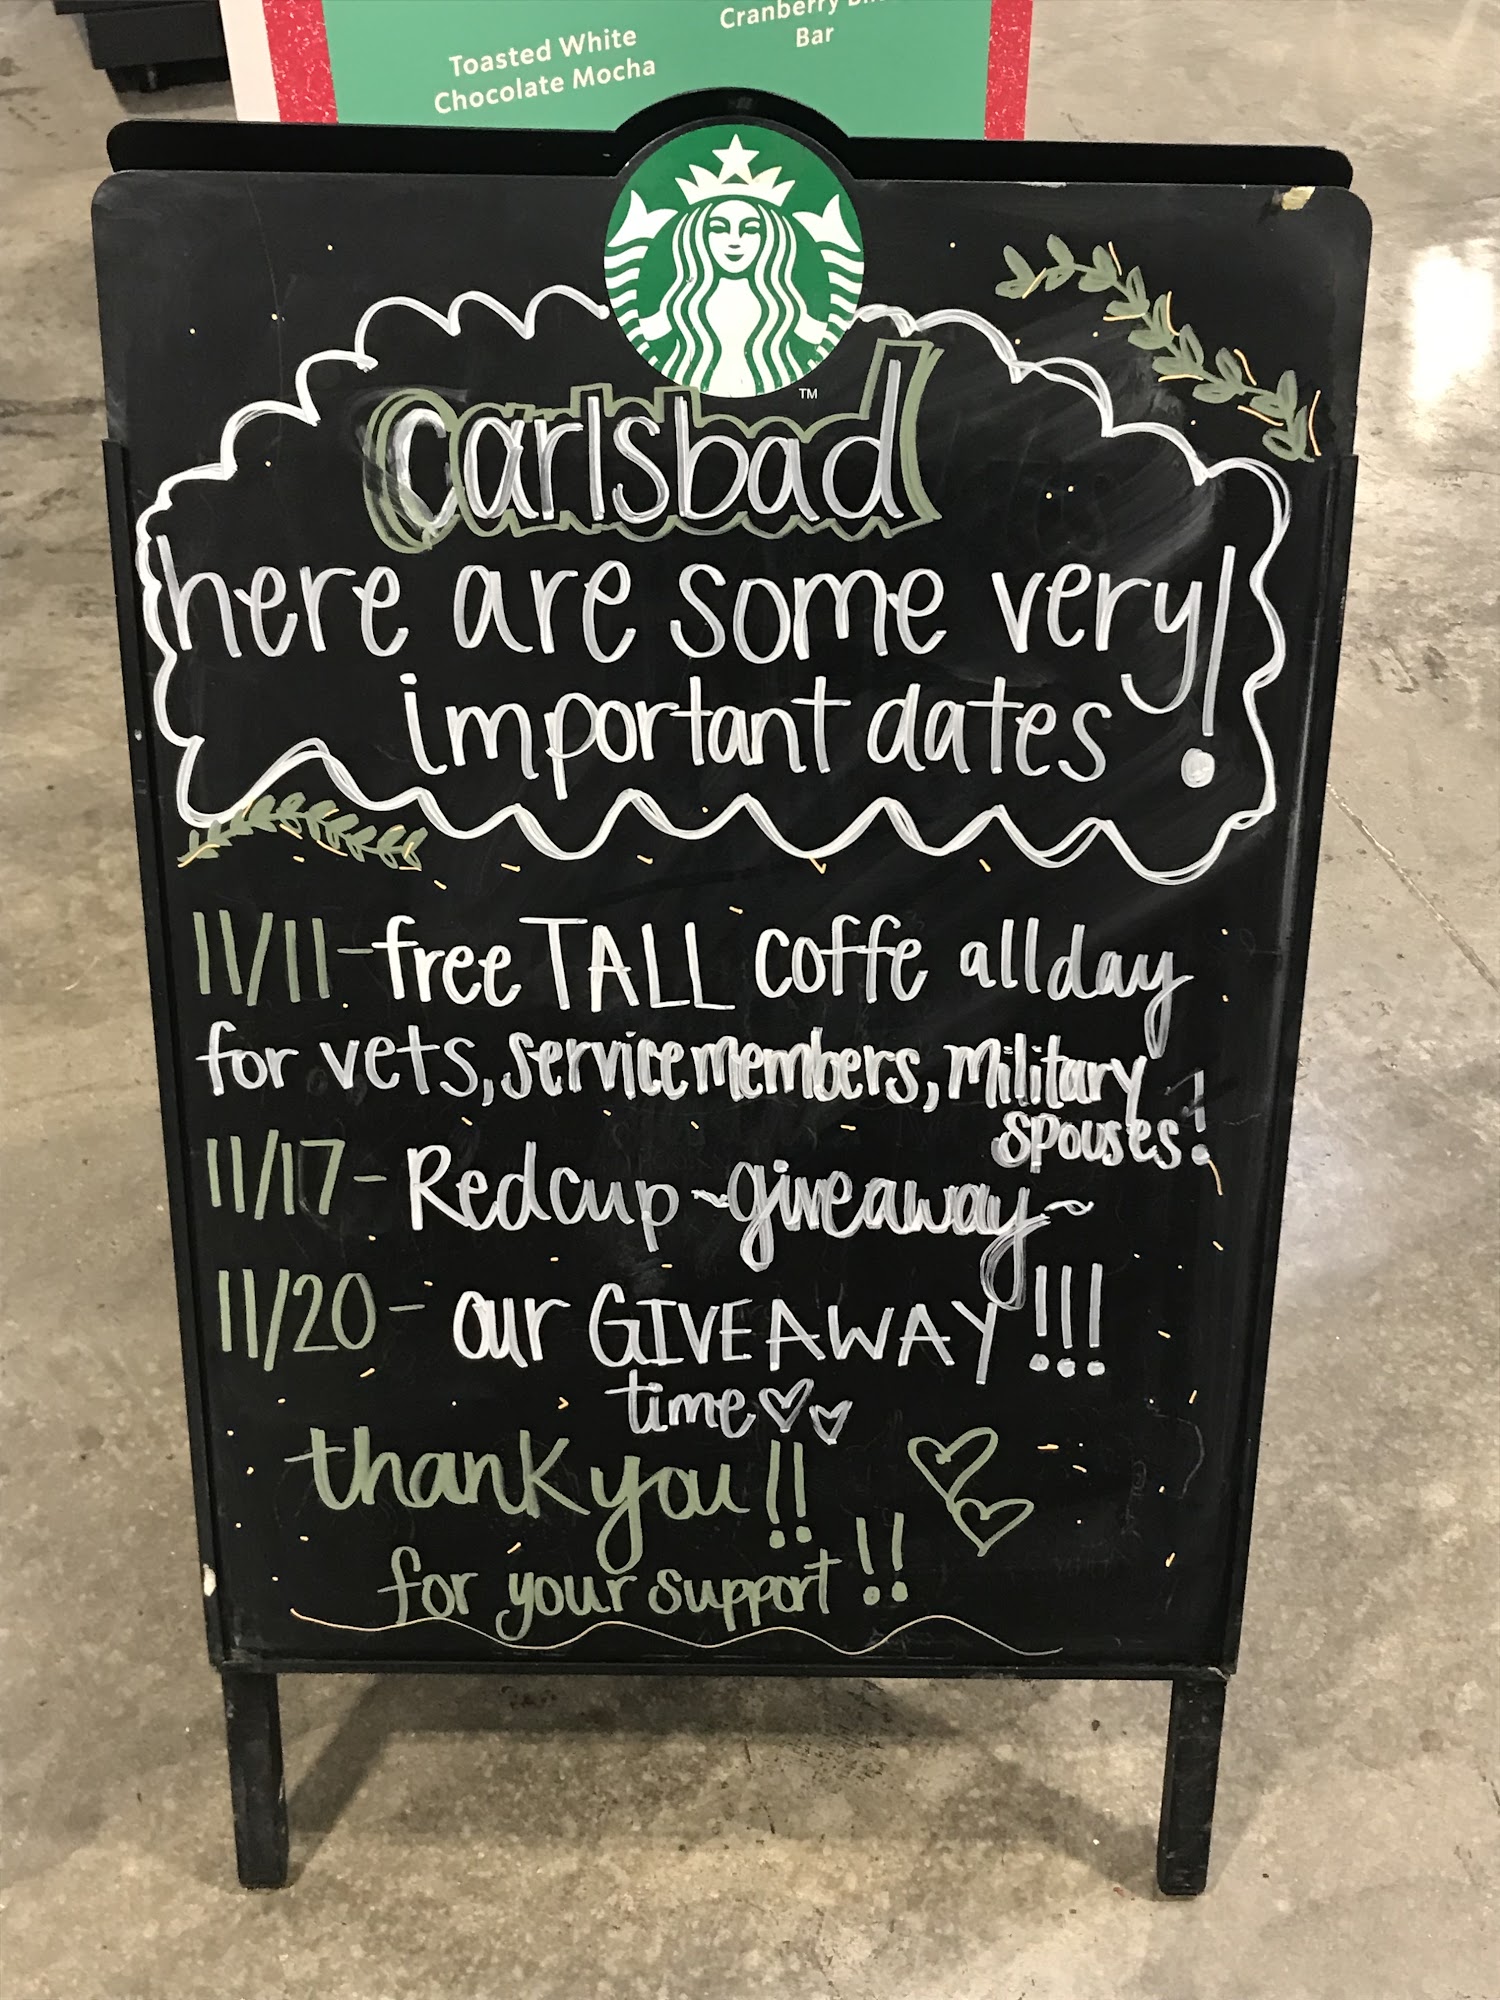 Toasted White
Chocolate Mocha
Cranberry
Bar
TM
carlsbad
here are some very!
important dates
11/11-free TALL coffe all day
for vets, servicemembers, military
spouses!
11/17- Redcup ~giveaway~
11/20- our GIVEAWAY!!!
time♡♡
thank you!!
for your support!!